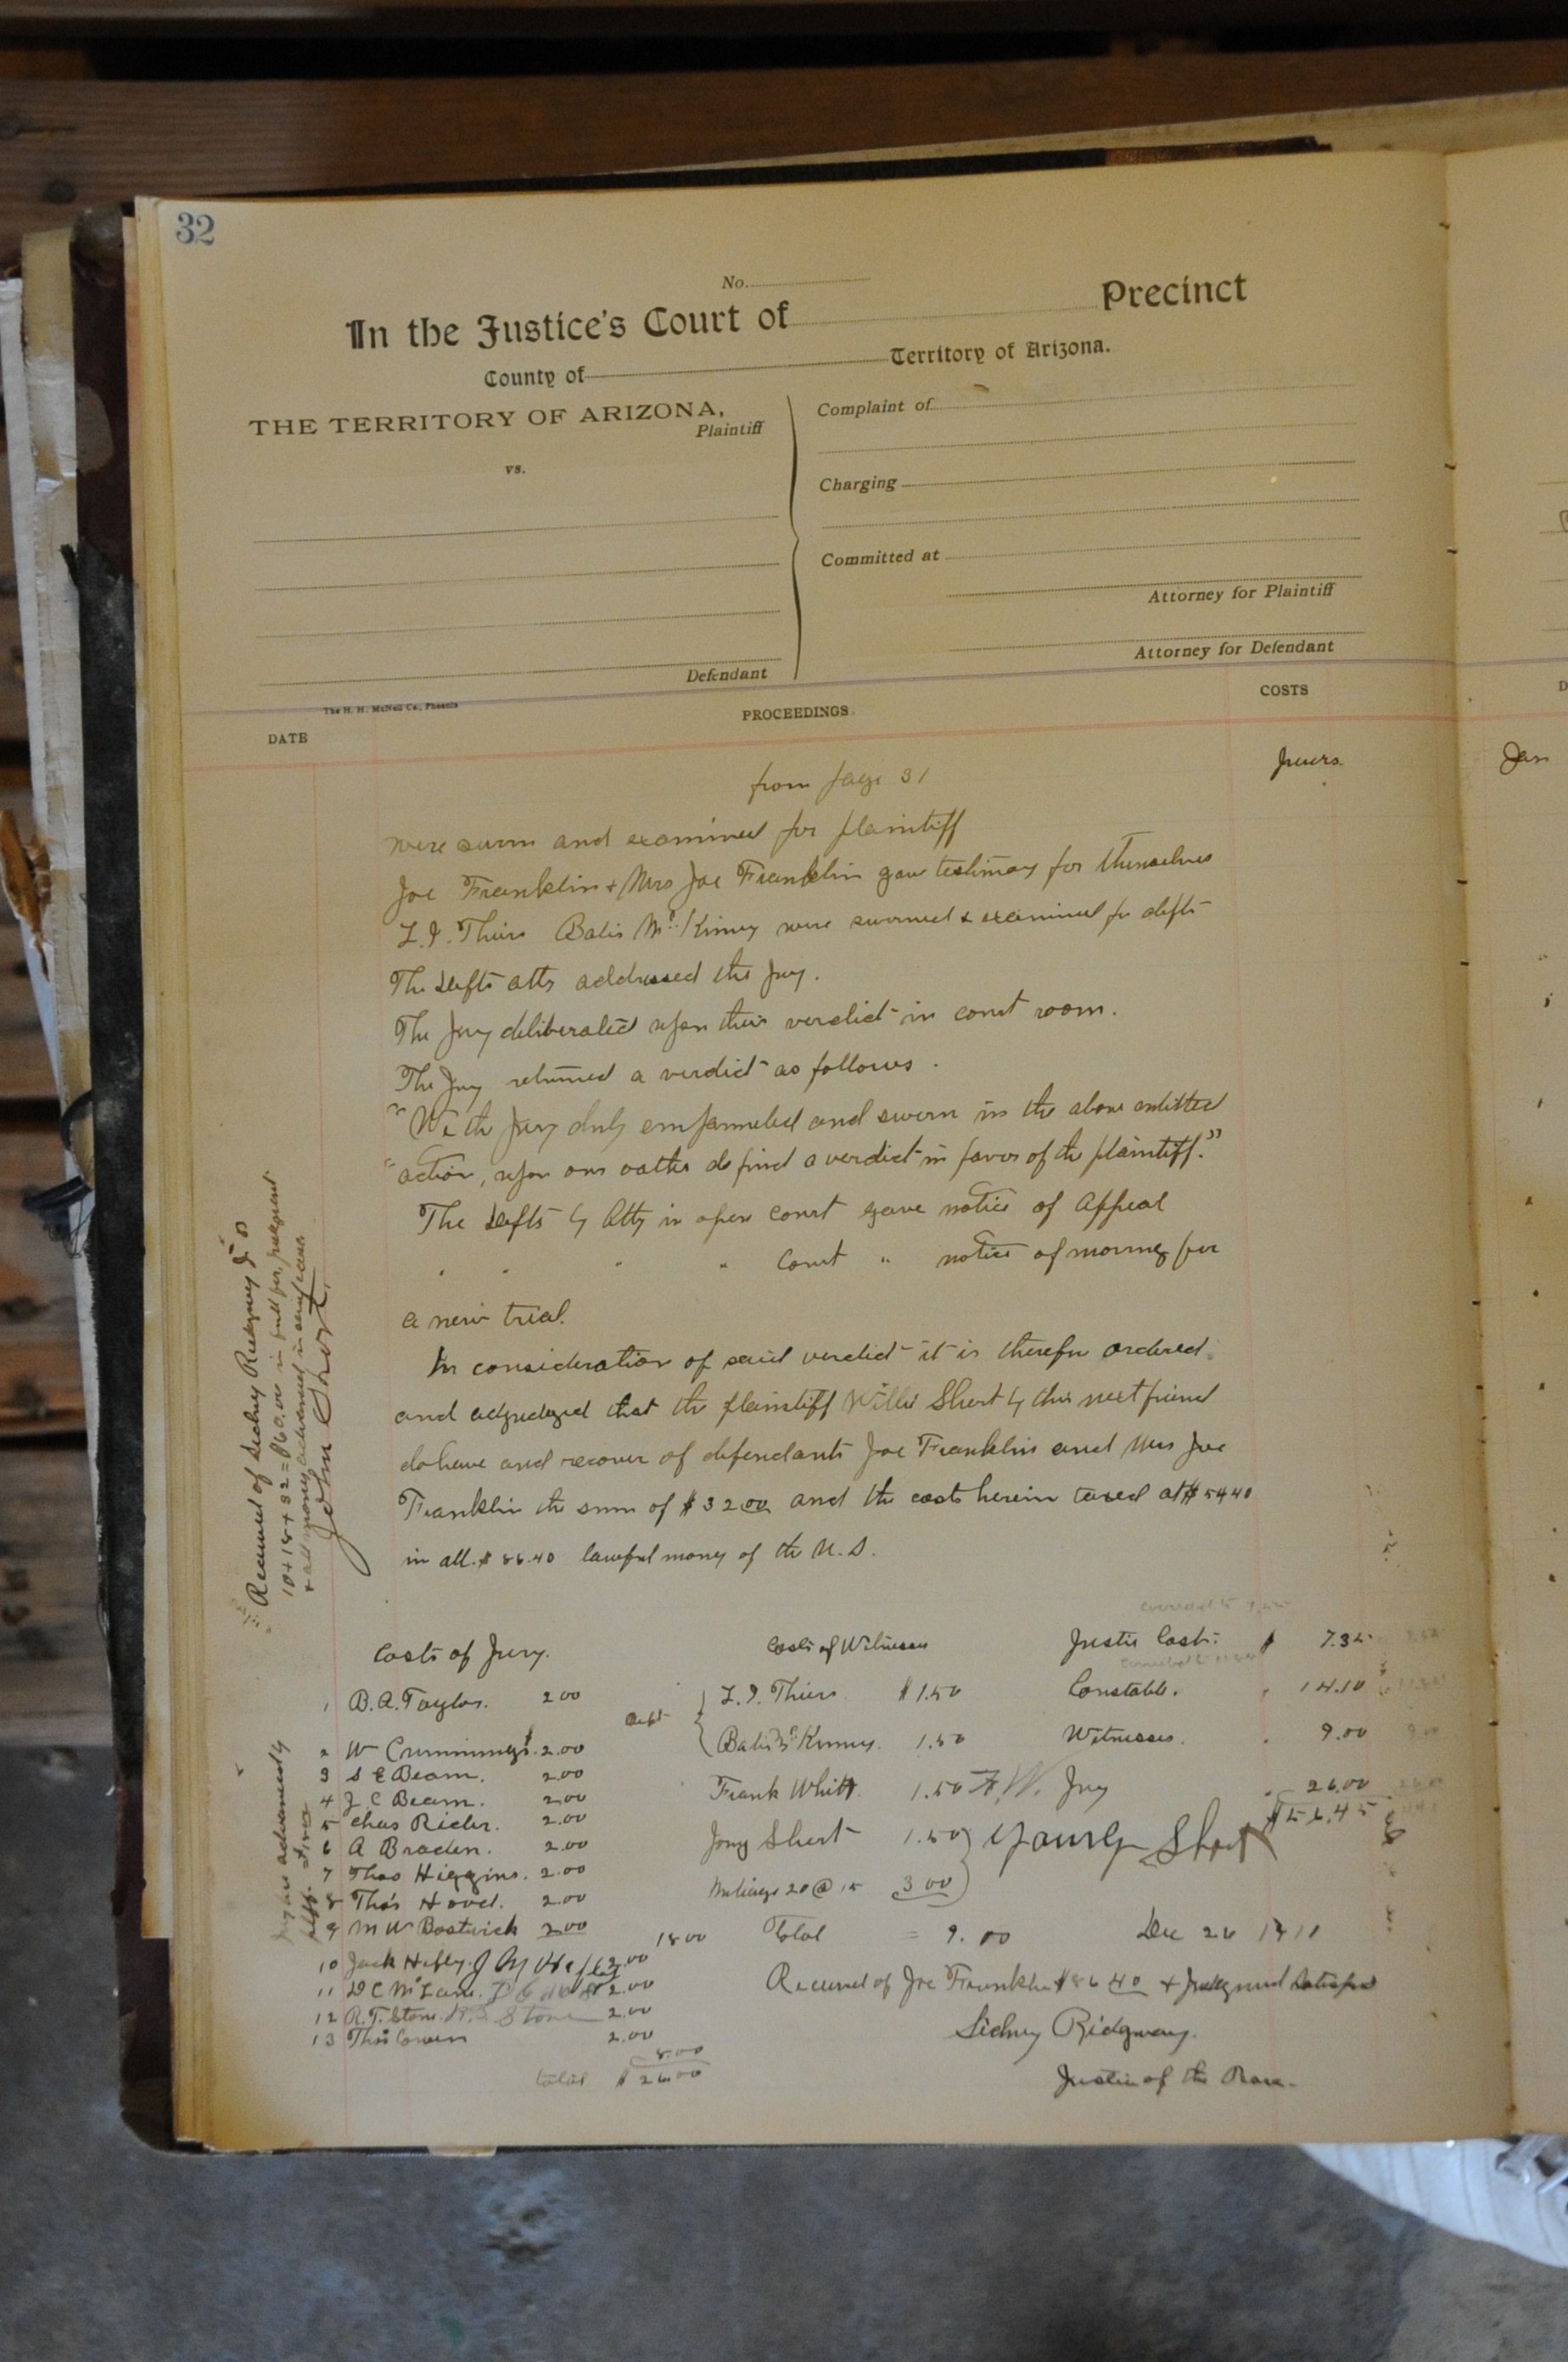 32
No.
In the Justice's Court of Precinct
County of Territory of Arizona.
THE TERRITORY OF ARIZONA,
Plaintiff
vs.
Defendant
Complaint of
Charging
Committed at
Attorney for Plaintiff
Attorney for Defendant
The H. H. McNeil Co., Phoenix
DATE
PROCEEDINGS.
COSTS
from page 31
were sworn and examined for plaintiff
Joe Franklin & Mrs Joe Franklin gave testimony for themselves
were & examined for defts
The Defts atty addressed the jury.
The Jury deliberated upon their verdict in court room.
The Jury returned a verdict as follows.
"We the Jury duly empanneled and sworn in the above entitled
"action, upon our oaths do find a verdict in favor of the plaintiff."
The Defts by Atty in open court gave notice of Appeal
" " " " Court " notice of moving for
a new trial.
In consideration of said verdict it is therefor ordered
and adjudged that the plaintiff Willie Short by his next friend
do have and recover of defendants Joe Franklin and Mrs Joe
Franklin the sum of $32.00 and the costs herein taxed at $54.40
in all $86.40 lawful money of the U.S.
Received of Sidney Ridgway
10+18+32=$60.00 in full for judgment
& all money advanced in
John Short
Costs of Jury.
1 B.A. Taylor. 2.00
2 W Cummings. 2.00
3 S E Beam. 2.00
4 J C Beam. 2.00
5 Chas Rider. 2.00
6 A Braden. 2.00
7 Thos Higgins. 2.00
8 Thos 2.00
9 M W Bostwick 2.00
18.00
10 Jack 2.00
11 D C 2.00
12 R.T. Stone. R.T. Stone 2.00
13 Thos 2.00
8.00
total $26.00
advanced by
Costs of Witnesses
Deft
$1.50
Kinney. 1.50
Frank Whitt 1.50 F.W.
Short 1.50
Mileage 20 @ 15 3.00
Total = 9.00
Justice Costs: $ 7.35
Constable. 14.10
Witnesses. 9.00
Jury 26.00
$56.45
Short
Dec 26 1911
Received of Joe Franklin $86.40 & judgment satisfied
Sidney Ridgway.
Justice of the Peace.
Jan